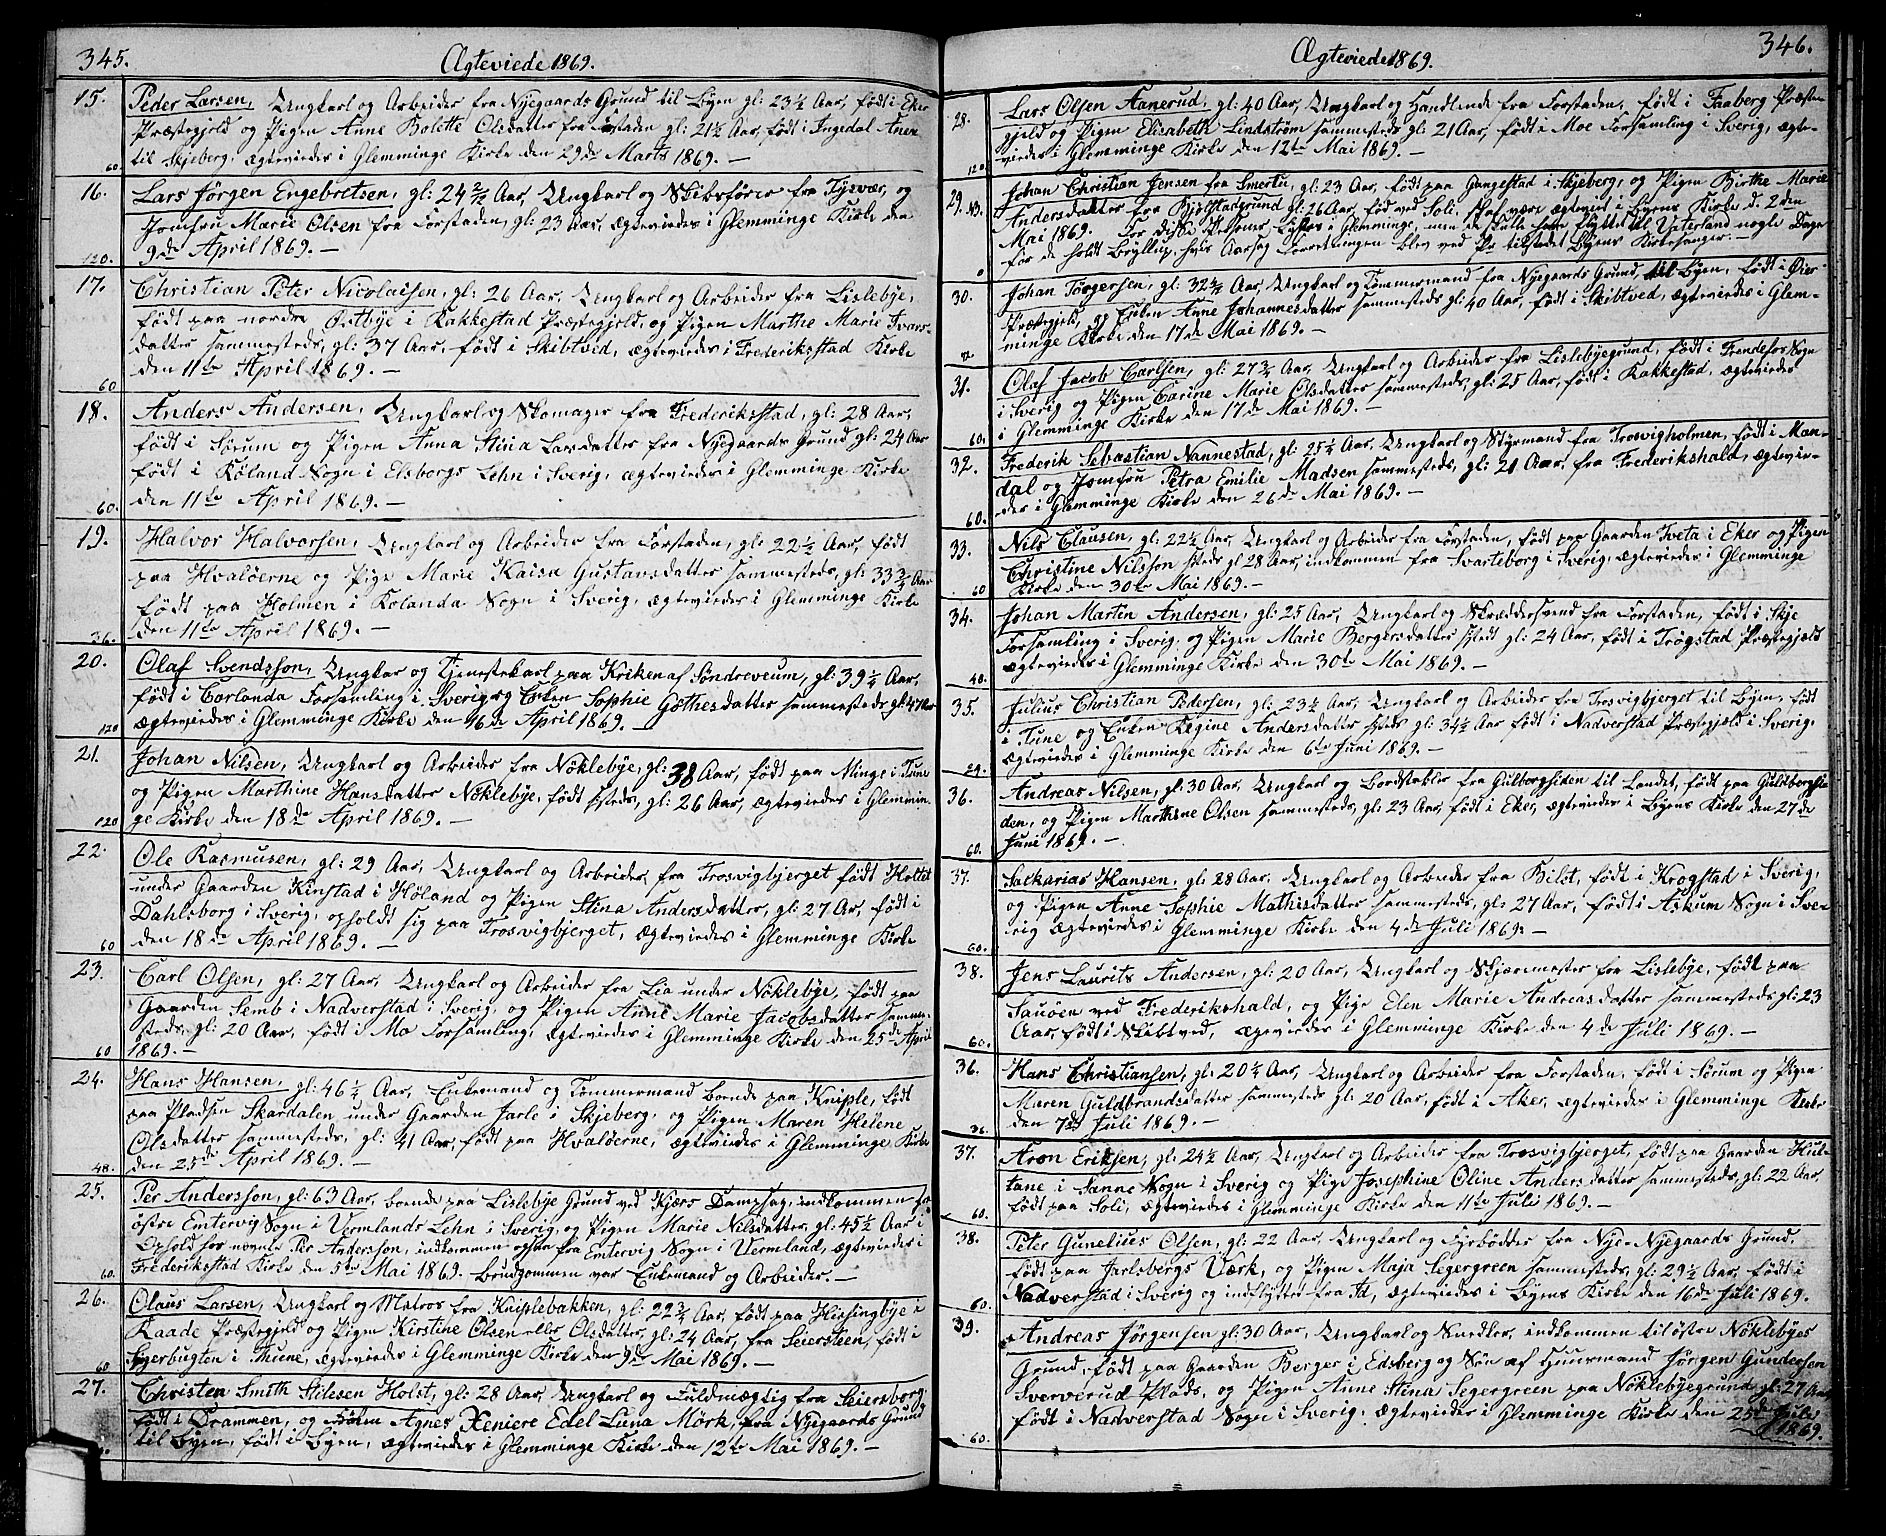 345.
Ægteviede 1869.
15. Peder Larsen, Ungkarl og Arbeider fra Nyegaards Grund til Byen gl: 23 1/2 Aar, født i Eker
Præstegjeld og Pigen Anne Bolette Olsdatter fra Forstaden gl: 21 1/2 Aar, født i Ingedal Anex
60 til Skjeberg, ægtevieder i Glemminge Kirke den 29de Marts 1869. —
16. Lars Jørgen Engebretsen, gl: 24 2/12 Aar, Ungkarl og Skibsfører fra Tysvær, og
Jomfru Marie Olsen fra Forstaden, gl: 23 Aar, ægtevieder i Glemminge Kirke den
120. 9de April 1869. —
17. Christian Peter Nicolaisen, gl: 26 Aar, Ungkarl og Arbeider fra Lislebye,
født paa nordre Østbye i Rakkestad Præstegjeld, og Pigen Marthe Marie Ivars-
datter sammesteds, gl: 37 Aar, født i Skibtved, ægtevieder i Frederiksstad Kirke
60 den 11te April 1869. —
18. Anders Andersen, Ungkarl og Skomager fra Frederiksstad, gl: 28 Aar,
født i Sørum og Pigen Anna Stina Larsdatter fra Nyegaards Grund, gl: 24 Aar
født i Køland Sogn i Elsborgs Lehn i Sverig, ægtevieder i Glemminge Kirke
60. den 11te April 1869. —
19. Halvor Halvorsen, Ungkarl og Arbeider fra Forstaden, gl: 22 1/2 Aar, født
paa Hvaløerne og Pige Marie Kaisa Gustavsdatter sammesteds, gl: 33 3/4 Aar
født paa Holmen i Kolanda Sogn i Sverig, ægtevieder i Glemminge Kirke
36. den 11te April 1869. —
20. Olaf Svendsson, Ungkar og Tjenestekarl paa Kriken af Søndreveum, gl: 39 1/4 Aar,
født i Corlanda Forsamling i Sverig og Enken Sophie Gøthesdatter sammesteds gl: 47 Aar
120 ægtevieder i Glemminge Kirke den 16de April 1869. —
21. Johan Nilsen, Ungkarl og Arbeider fra Nøklebye, gl: 38 Aar, født paa Minge i Tune
og Pigen Marthine Hansdatter Nøklebye, født sts: gl: 26 Aar, ægtevieder i Glemmin-
120 ge Kirke den 18de April 1869. —
22. Ole Rasmusen, gl: 29 Aar, Ungkarl og Arbeider, fra Trosvigbjerget født Hottet
under Gaarden Kinstad i Høland og Pigen Stina Andersdatter, gl: 27 Ar, født i
Dahlsborg i Sverig, opholdt sig paa Trosvigbjerget, ægtevieder i Glemminge Kirke
60 den 18de April 1869. —
23. Carl Olsen, gl: 27 Aar, Ungkarl og Arbeider fra Lia under Nøklebye, født paa
Gaarden Semb i Nadverstad i Sverig, og Pigen Anne Marie Jacobsdatter samme-
steds, gl: 20 Aar, født i Mo Forsamling, ægtevieder i Glemminge Kirke den 25de April
60 1869. —
24. Hans Hansen, gl: 46 1/2 Aar, Enkemand og Tømmermand boende paa Kniple, født
paa Pladsen Skardalen under Gaarden Jarle i Skjeberg, og Pigen Maren Helene
Olsdatter sammesteds, gl: 41 Aar, født paa Hvaløerne, ægtevieder i Glemminge Kirke
48. den 25de April 1869. —
25. Per Andersson, gl: 63 Aar, boende paa Lislebye Grund ved Kjærs Dampsag, indkommen fra
østre Emtervig Sogn i Vermlands Lehn i Sverig, og Pigen Marie Nilsdatter, gl: 45 1/2 Aar i
Ophold hos nævnte Per Andersson, indkommen ogsaa fra Emtervig Sogn i Vermland, ægtevieder i
60. Frederiksstad Kirke den 5te Mai 1869. Brudgommen var Enkemand og Arbeider. —
26. Olaus Larsen, Ungkarl og Matros fra Kniplebakken, gl: 22 3/4 Aar, født paa Huusingbye i
Raade Præstegjeld og Pigen Kirstine Olsen eller Olsdatter, gl: 24 Aar, fra Seiersteen, født i
60 Seierbugten i Thune, ægtevieder i Glemminge Kirke den 9de Mai 1869. —
27. Christen Smith Stilesen Holst, gl: 28 Aar, Ungkarl og Fuldmægtig fra Seiersborg,
født i Drammen, og Frøken Agnes Xeniere Edel Luna Mørk, fra Nyegaards Grund
til Byen, født i Byen, ægtevieder i Glemminge Kirke den 12te Mai 1869. —
Ægteviede 1869.
346.
28. Lars Olsen Aanerud, gl: 40 Aar, Ungkarl og Handlende fra Forstaden, født i Faaberg Præste-
gjeld og Pigen Elisabeth Lindstrøm sammesteds gl: 21 Aar, født i Moe Forsamling i Sverig, ægte-
120 vieder i Glemminge Kirke den 12te Mai 1869. —
29. Johan Christian Jensen fra Smertu, gl: 23 Aar, født paa Gangestad i Skjeberg, og Pigen Birthe Marie
Andersdatter fra Kjølstadgrund gl: 26 Aar, fød ved Soli, skal være ægteviet i Byens Kirke d: 2 den
Mai 1869. For disse Personer lystes i Glemminge, men de skulle flyttet til Vesterland nogle Dage
0 før de holdt Bryllup, hvis Aarsag Forretningen blev ved Pr: tilstedet Byens Kirkesanger. —
30. Johan Torgersen, gl: 32 3/4 Aar, Ungkarl og Tømmermand fra Nyegaards Grund til Byen, født i Øier
Præstegjeld, og Enken Anne Johannesdatter sammesteds gl: 40 Aar, født i Skibtved, ægtevieder i Glem-
72 minge Kirke den 17de Mai 1869. —
31. Olaf Jacob Carlsen, gl: 27 3/4 Aar, Ungkarl og Arbeider fra Lislebyegrund, født i Frendefos Sogn
i Sverig og Pigen Carine Marie Olsdatter sammesteds, gl: 25 Aar, født i Rakkestad, ægtevieder
60. i Glemminge Kirke den 17de Mai 1869. —
32. Frederik Sebastian Nannestad, gl: 25 1/2 Aar, Ungkarl og Styrmand fra Trosvigholmen, født i Man-
dal og Jomfru Petra Emilie Madsen sammesteds, gl: 21 Aar, fra Frederikshald, ægtevie-
60. der i Glemminge Kirke den 26de Mai 1869. —
33. Nils Clausen, gl: 22 1/2 Aar, Ungkarl og Arbeider fra Forstaden, født paa Gaarden Tveta i Eker og Pigen
Christine Nilsson steds gl 28 Aar, indkommen fra Svarteborg i Sverig, ægtevieder i Glemminge
60 Kirke den 30te Mai 1869. —
34. Johan Martin Andersen, gl: 25 Aar, Ungkarl og Skræddersvend fra Forstaden, født i Skje
Forsamling i Sverig, og Pigen Marie Bergersdatter sstedt gl: 24 Aar, født i Trøgstad Præstegjeld
40. ægtevieder i Glemminge Kirke den 30te Mai 1869. —
35. Julius Christian Pedersen, gl: 23 1/2 Aar, Ungkarl og Arbeider fra Trosvigbjerget til Byen, født
i Tune og Enken Regine Andersdatter steds gl: 34 1/2 Aar født i Nadverstad Præstegjeld i Sverig,
24. ægtevieder i Glemminge Kirke den 6te Juni 1869. —
36. Andreas Nilsen, gl: 30 Aar, Ungkarl og Bordstabler fra Gulborgsiden til Landet, født paa Guldborgsi-
den, og Pigen Marthine Olsen sammesteds, gl: 23 Aar, født i Eker, ægtevieder i Byens Kirke den 27de
60. Juni 1869. —
37. Sackarias Hansen, gl: 28 Aar, Ungkarl og Arbeider fra Bilst, født i Krogstad i Sverig,
og Pigen Anne Sophie Mathisdatter sammesteds, gl: 27 Aar, født i Askum Sogn i Sve-
60. rig ægtevieder i Glemminge Kirke den 4de Juli 1869. —
38. Jens Laurits Andersen, gl: 20 Aar, Ungkarl og Skjærmester fra Lislebye, født paa
Sauøen ved Frederikshald, og Pige Elen Marie Andreasdatter sammesteds, gl: 23
60. Aar, født i Skibtved, ægtevieder i Glemminge Kirke den 4de Juli 1869. —
36. Hans Christiansen, gl: 20 1/2 Aar, Ungkarl og Arbeider fra Forstaden, født i Sørum og Pigen
Maren Guldbrandsdatter sammesteds gl: 20 Aar, født i Aker, ægtevieder i Glemminge Kirke
36. den 7de Juli 1869. —
37. Aron Eriksen, gl: 24 1/2 Aar, Ungkarl og Arbeider fra Trosvigbjerget, født paa Gaarden Hul-
tane i Sanne Sogn i Sverig og Pige Josephine Oline Andersdatter sammesteds, gl: 22 Aar
60. født paa Soli, ægtevieder i Glemminge Kirke den 11te Juli 1869. —
38. Peter Gunelius Olsen, gl: 22 Aar, Ungkarl og Fyrbødder fra Nye-Nyegaards Grund,
født paa Jarlsbergs Værk, og Pigen Maja Segergreen sammesteds, gl: 29 1/2 Aar, født i
60. Nadverstad i Sverig og indflyttet fra Id, ægtevieder i Byens Kirke den 16de Juli 1869.
39. Andreas Jørgensen gl: 30 Aar, Ungkarl og Smedler, indkommen til østre Nøklebyes
Grund, født paa Gaarden Berger i Edsberg og Søn af Huusmand Jørgen Gundersen
Sververud Plads, og Pigen Anne Stina Segergreen paa Nøklebyegrund, gl: 27 Aar
født i Nadverstad Sogn i Sverig, ægtevieder i Glemminge Kirke den 25de Juli
60. 1869.